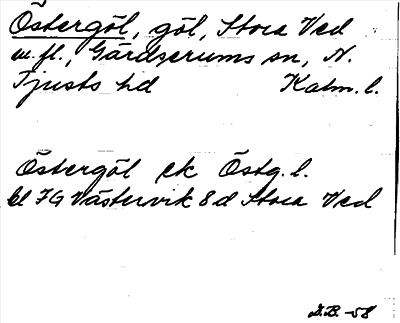 Östergöl, göl, Stora Ved
m.fl., Gärdserums sn, N.
Tjusts hd Kalm. l.
Östergöl ek Östg. l.
bl 7G Västervik 8d Stora Ved
G.B. -58